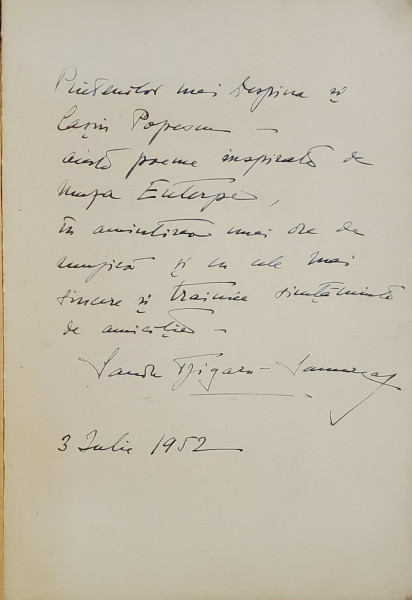 Prietenilor mei Despina și
Cașin Popescu —
aceste poeme inspirate de
Muza Euterpe,
în amintirea unei ore de
muzică și cu cele mai
sincere și trainice simțăminte
de amiciție —
Sanda Tzigara-Samurcaș
3 Iulie 1952